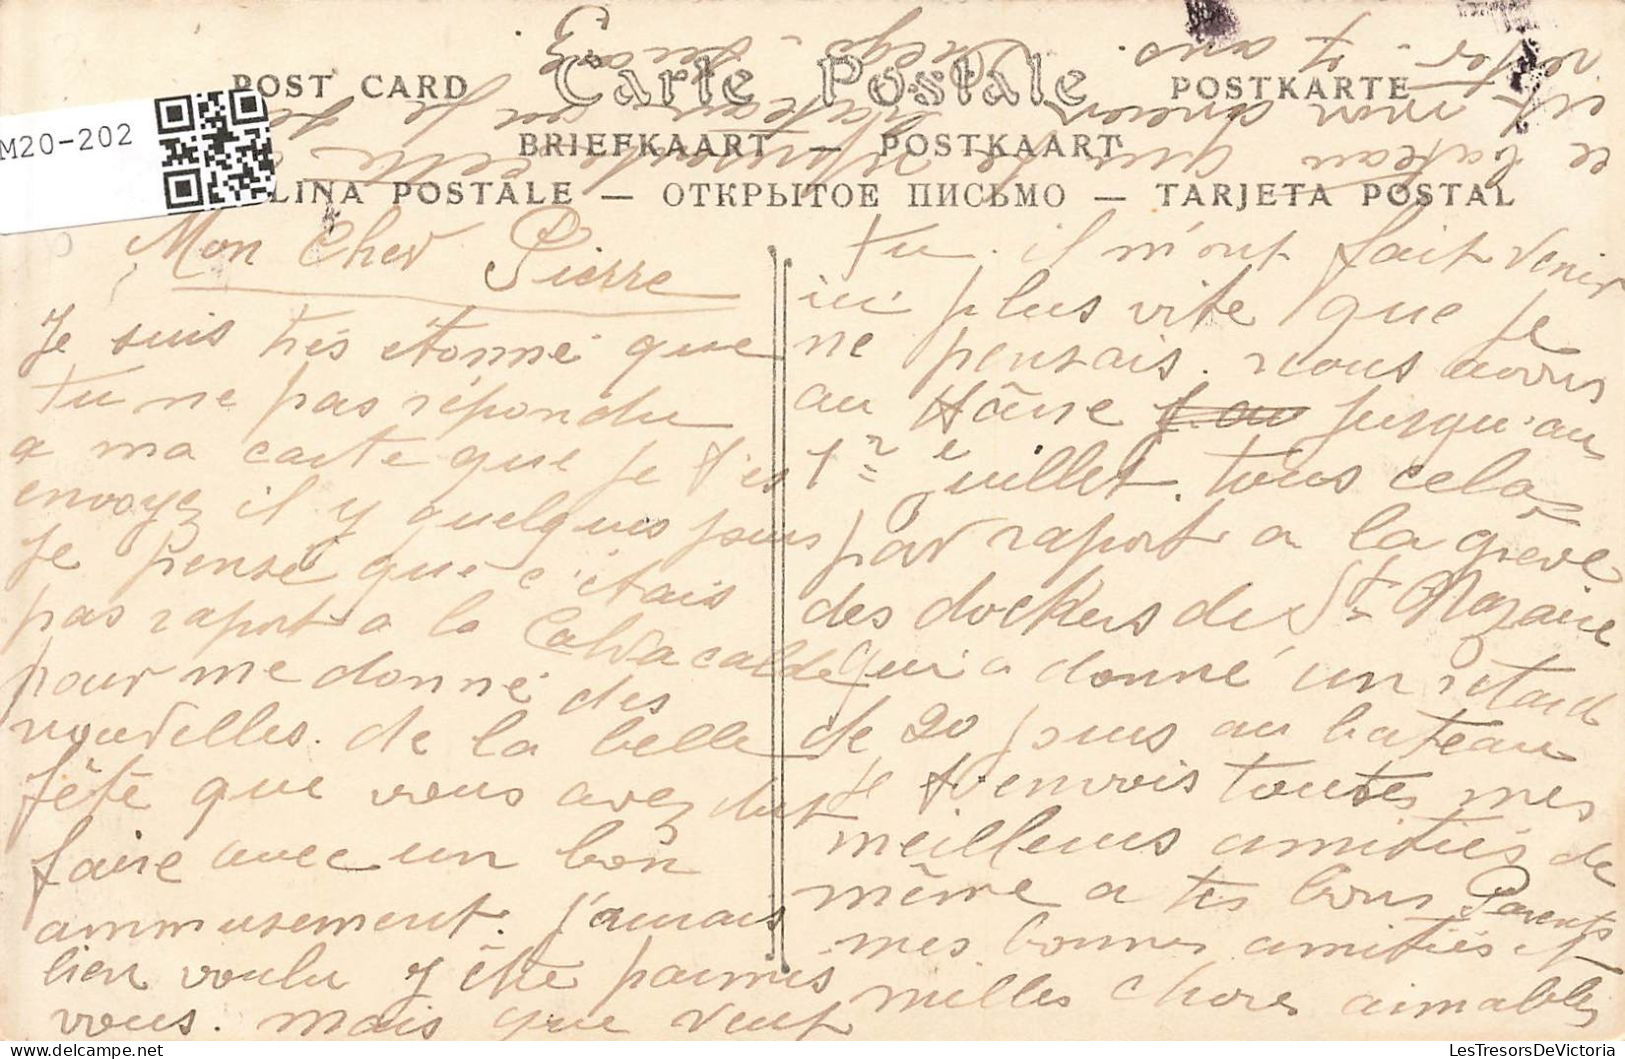 POST CARD Carte Postale POSTKARTE
BRIEFKAART — POSTKAART
LINA POSTALE — ОТКРЫТОЕ ПИСЬМО — TARJETA POSTAL
M20-202
Mon Cher Pierre
Je suis très étonné que
tu ne pas répondu
a ma carte que je t'es
envoyez il y quelques jours
je pense que c'étais
pas raport a la Calvacalde
pour me donné des
nouvelles. de la belle
fête que vous avez dut
faire avec un bon
ammusement. j'aurais
bien voulu y être parmis
vous. mais que veut
tu. il m'ont fait venir
ici plus vite que je
ne pensais. nous avons
au Hâvre jusqu'au
1er juillet. tous cela
par raport a la grève
des dockers de St Nazaire
qui a donné un retard
de 20 jours au bateau
Je t'envois toutes mes
meilleurs amitiés de
même a tes bons Parents
mes bonnes amitiés et
milles choses aimables
ce bateau que
est mon ancien bateau ou je
rester 7 ans. Diego-Suarez
LesTresorsDeVictoria